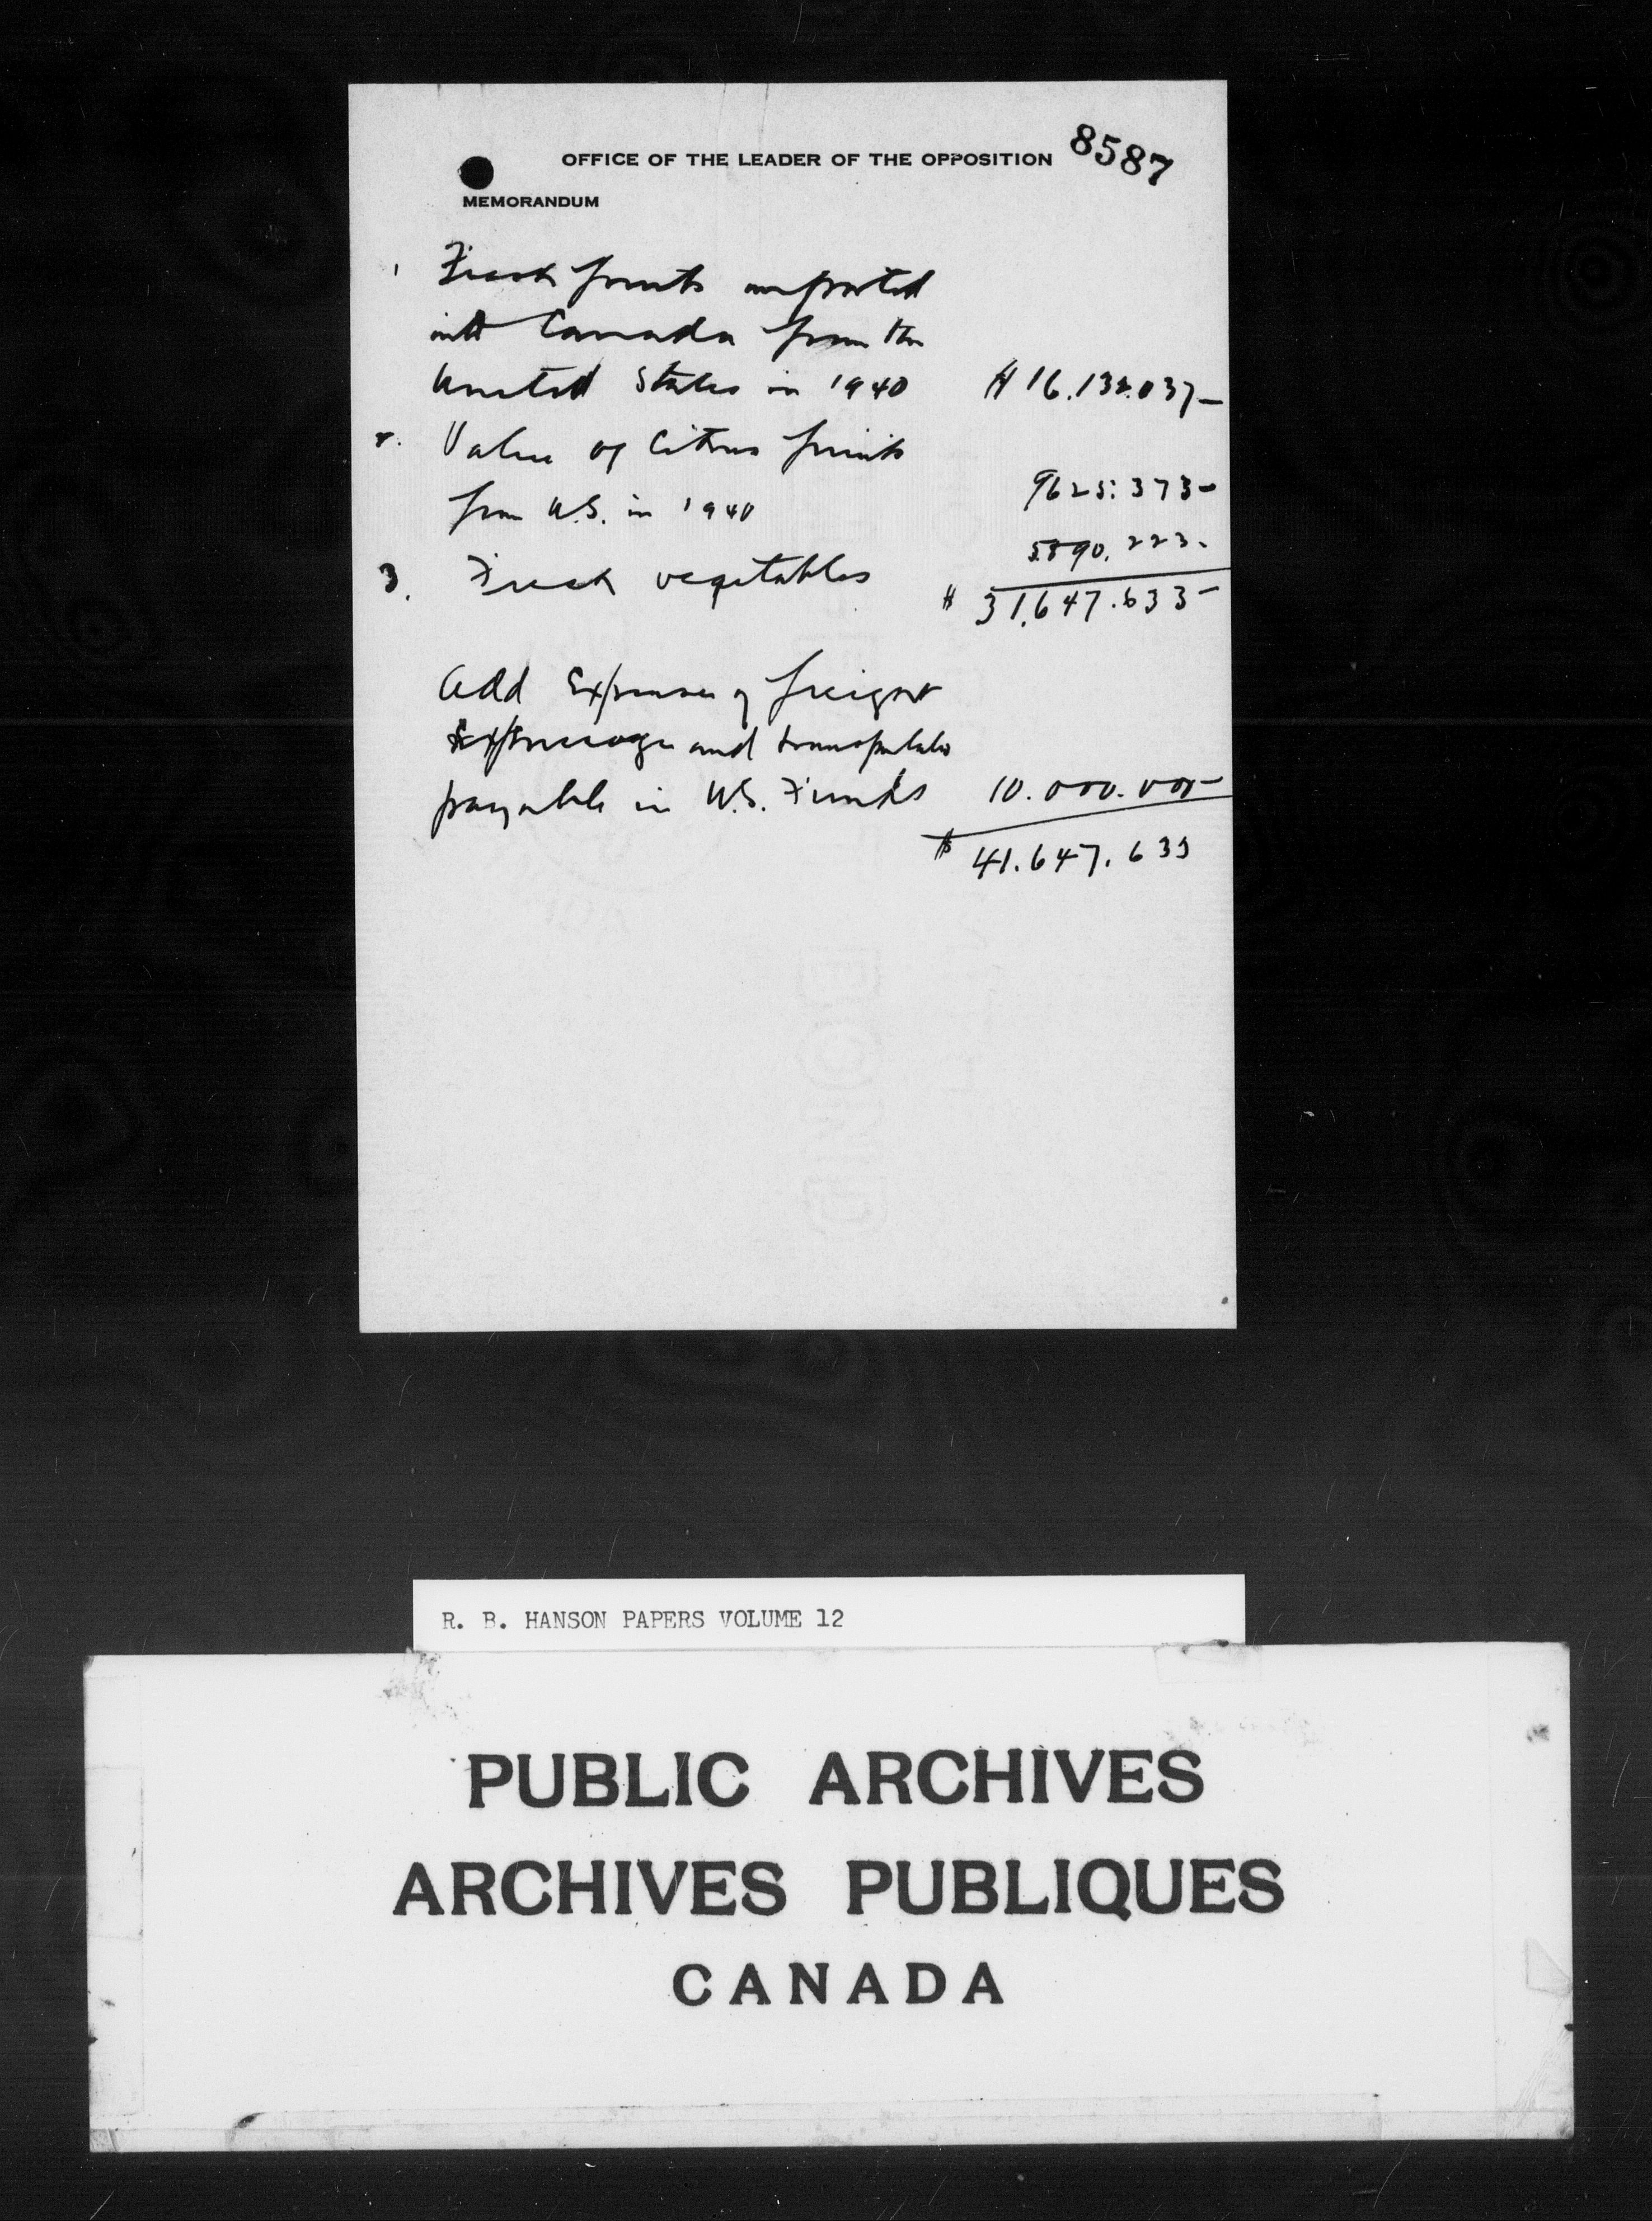 8587
OFFICE OF THE LEADER OF THE OPPOSITION
MEMORANDUM
1 Fresh fruits imported
into Canada from the
United States in 1940 $ 16.132.037-
2. Value of Citrus fruits
from U.S. in 1940 9625.373-
3. Fresh vegetables 5890.223-
$ 31,647.633-
Add Expense of freight
and transportation
payable in U.S. Funds 10.000.000-
$ 41.647.633
BOND
R. B. HANSON PAPERS VOLUME 12
PUBLIC ARCHIVES
ARCHIVES PUBLIQUES
CANADA